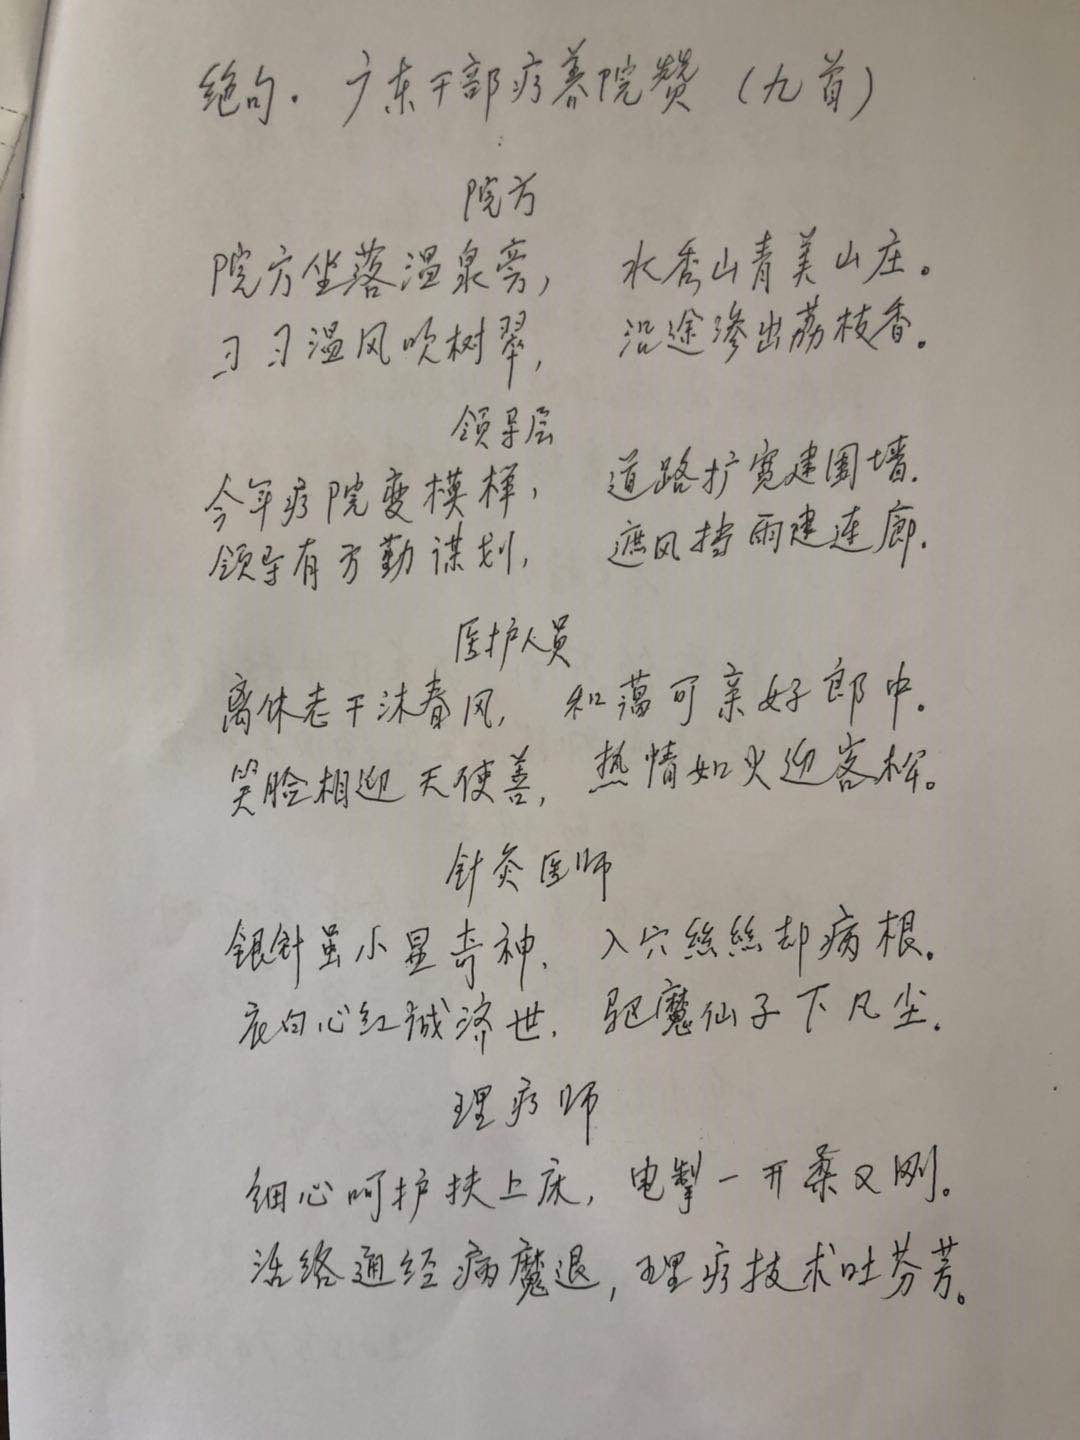 绝句·广东干部疗养院赞（九首）
院方
院方坐落温泉旁，水秀山青美山庄。
习习温风吹树翠，沿途渗出荔枝香。
领导层
今年疗院变模样，道路扩宽建围墙.
领导有方勤谋划，遮风挡雨建连廊.
医护人员
离休老干沐春风，和蔼可亲好郎中.
笑脸相迎天使善，热情如火迎客。
针灸医师
银针虽小显奇神.入穴丝丝却病根.
衣白心红诚济世.驱魔仙子下凡尘.
理疗师
细心呵护扶上床，电掣一开柔又刚。
活络通经病魔退，理疗技术吐芬芳。